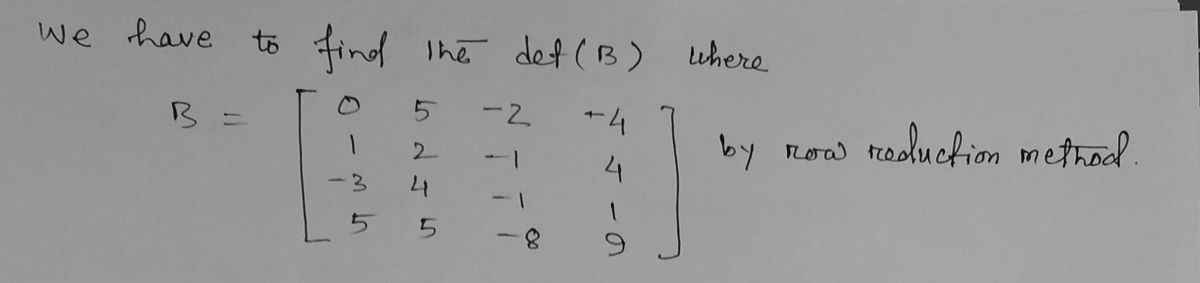 We have to find the det(B) where
B = [ 0 5 -2 -4
1 2 -1 4
-3 4 -1 1
5 5 -8 9 ] by row reduction method.